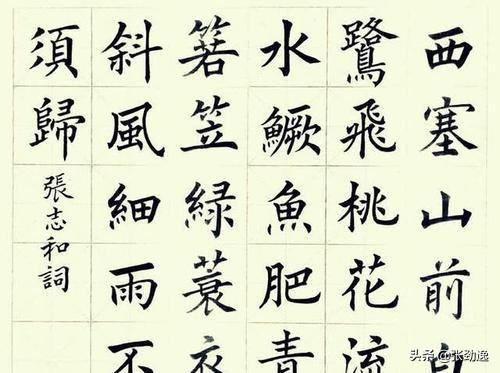 西塞山前白
鷺飛桃花流
水鱖魚肥青
箬笠緑蓑衣
斜風細雨不
須歸
張志和詞
头条 @张劲逸